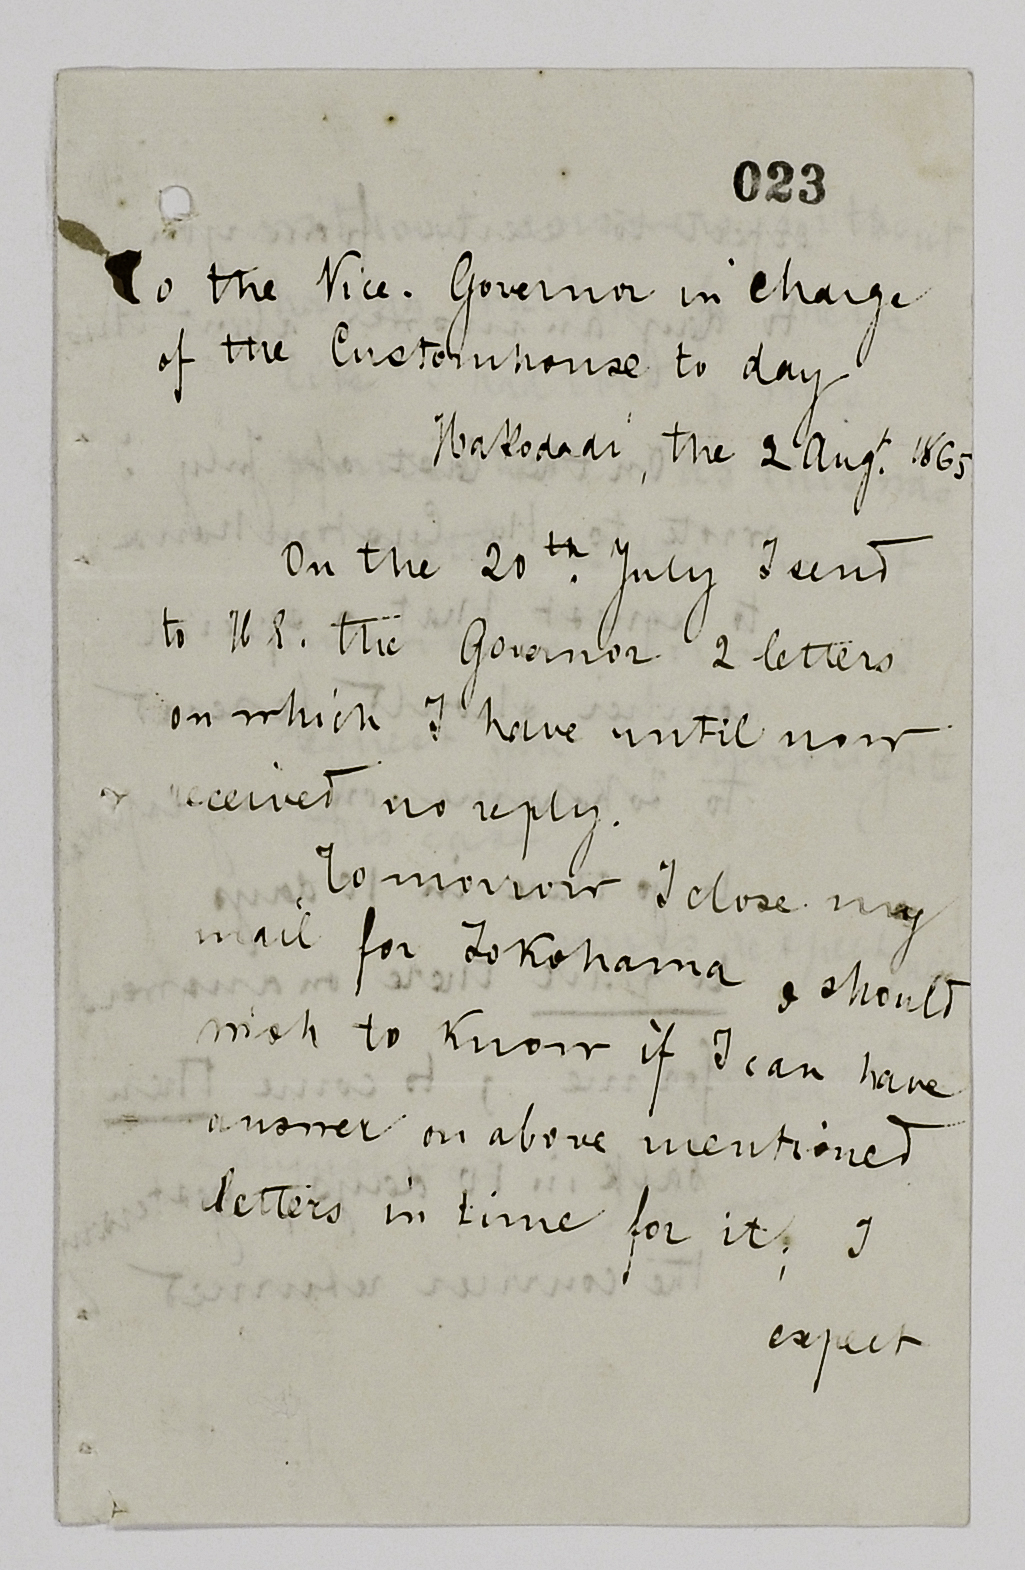 023
To the Vice. Governor in charge
of the Customhouse to day
Hakodadi, the 2 Augt. 1865
On the 20th. July I send
to H E. the Governor 2 letters
on which I have until now
received no reply.
Tomorrow I close my
mail for Yokohama & should
wish to know if I can have
answer on above mentioned
letters in time for it; I
expect